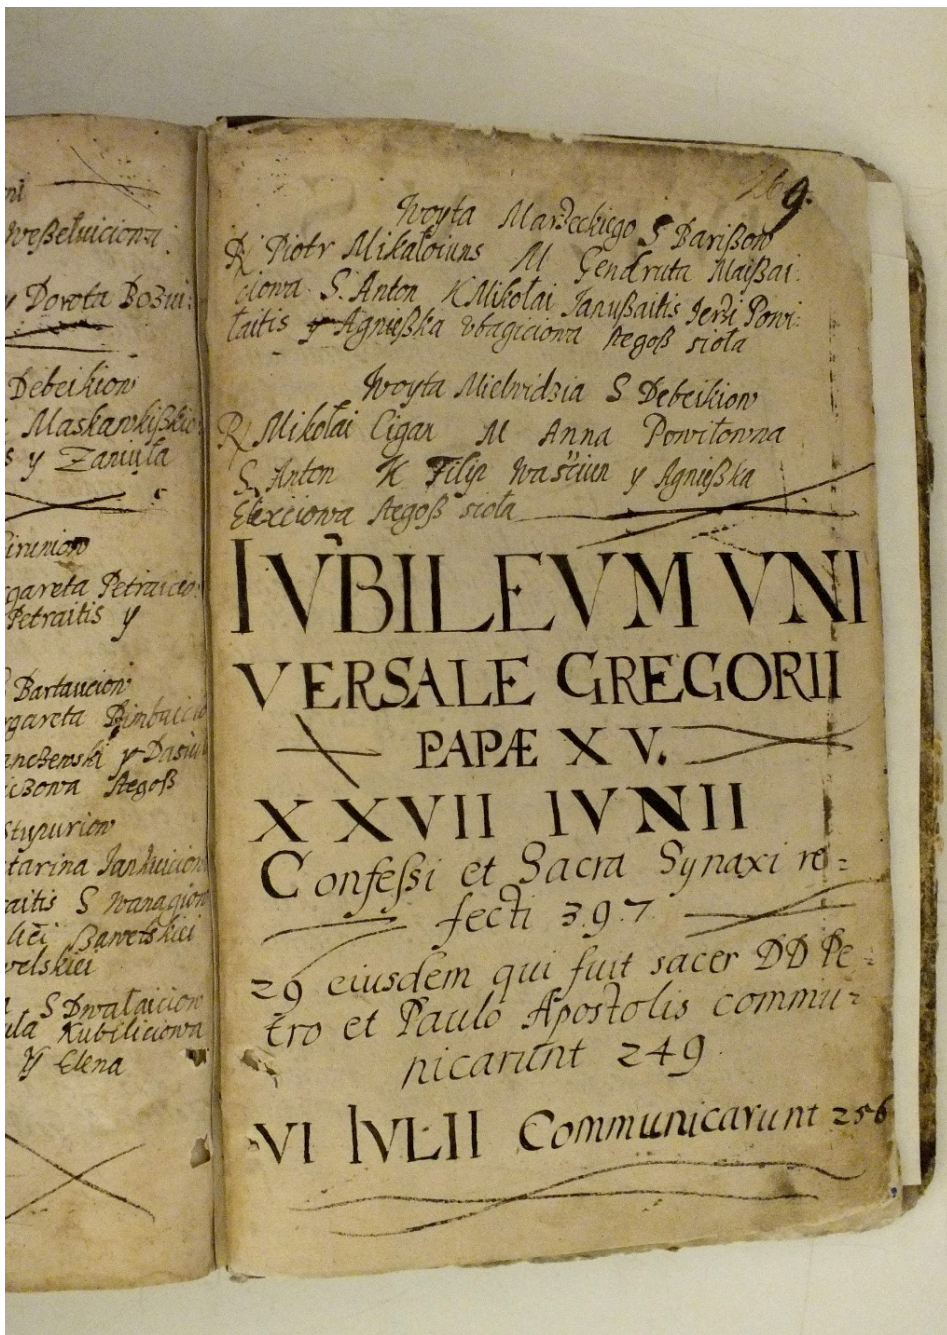 Weßeluiciona
y Dorota Bozui:
Debeikiow
Maskawkißkio
s y Zaniuta
gareta Petraicio:
Petraitis y
S Bartaucion
rgareta
y
Stegoß
Stupuriow
tarina Jankuicion
raitis S Wanagiow
S Dwalaiciow
Kubiliciowa
Y Elena
9.
Woyta Marzeckiego S Darißow
R Piotr Mikałoiuns M Gendruta Maißai:
ciowa S. Anton K Mikołai Janußaitis Jerzi Powi:
łaitis y Agnießka Ubagiciowa stegoß sioła
Woyta Mielwidzia S Debeikiow
R Mikołai Cigan M Anna Powiłowna
S. Anton K Filip Wasciun y Agnießka
Elexciowa stegoß sioła
IVBILEVM VNI
VERSALE GREGORII
PAPÆ XV.
XXVII IVNII
Confeßi et Sacra Synaxi re=
fecti 397
29 eiusdem qui fuit sacer DD Pe=
tro et Paulo Apostolis commu=
nicarunt 249
VI IVLII Communicarunt 256